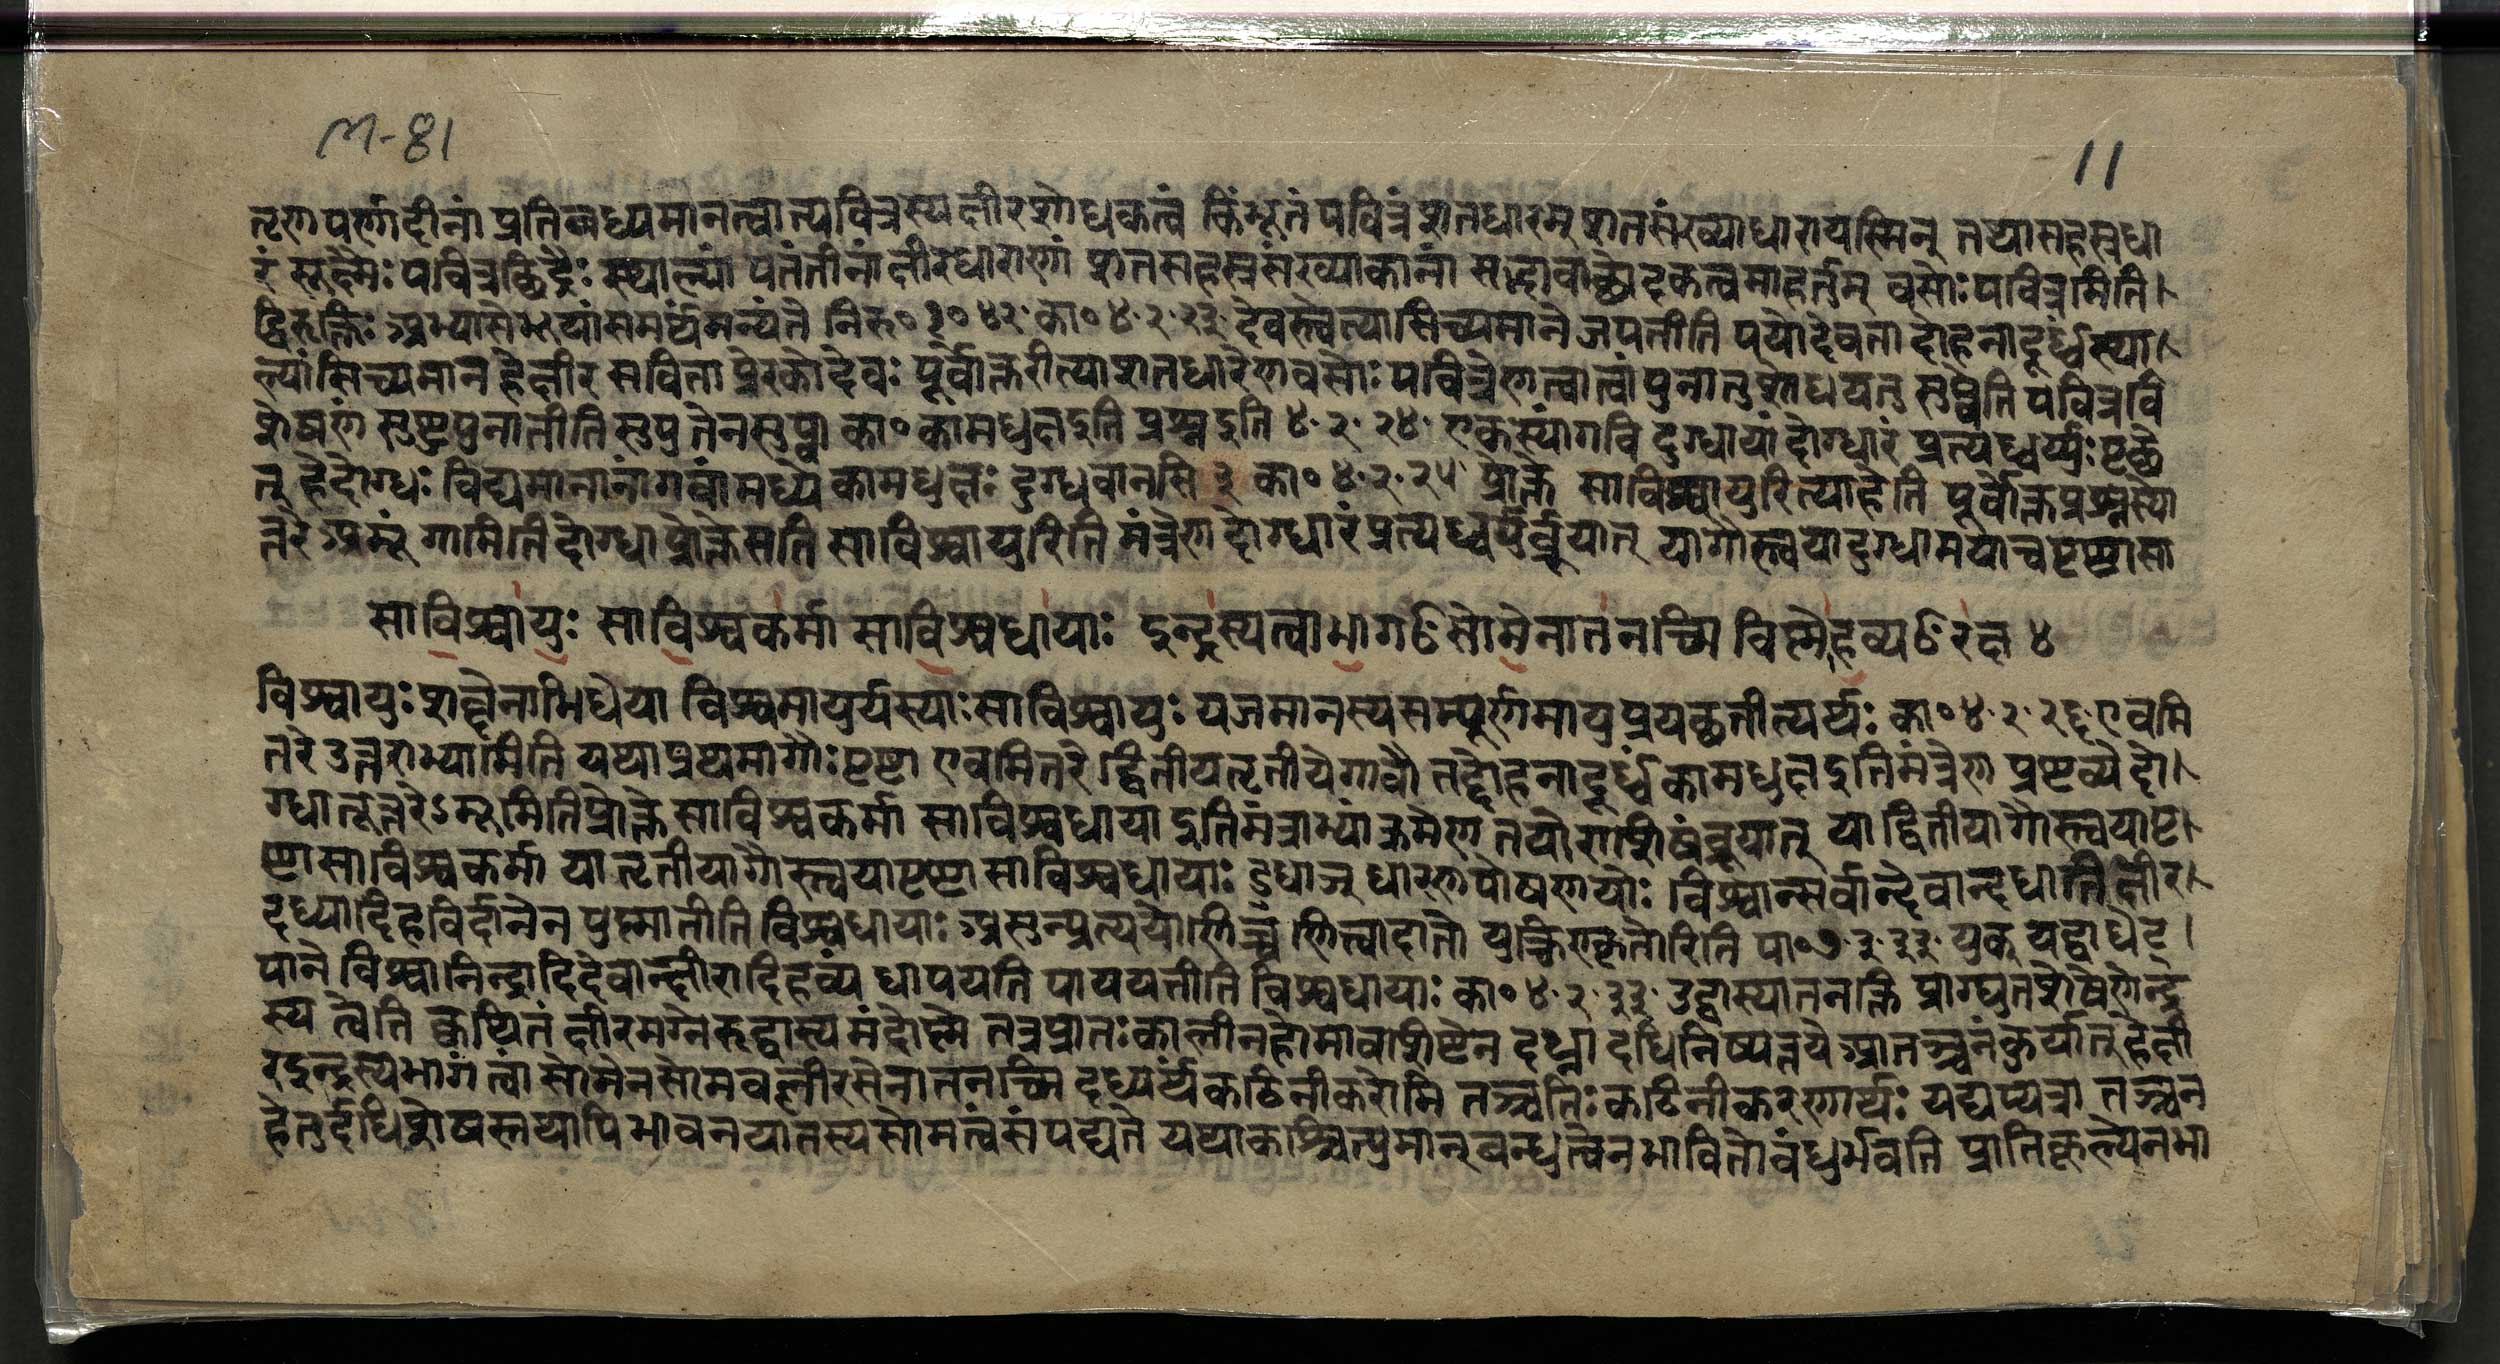 M-81
11
तृणपर्णादीनां प्रतिबध्यमानत्वात्पवित्रस्य क्षीरशोधकत्वं किंभूतं पवित्रं शतधारम् शतसंख्याधारायस्मिन् तथासहस्रधा
रं सूक्ष्मैः पवित्रछिद्रैः स्थाल्यां पतंतीनां क्षीरधाराणां शतसहस्रसंख्याकानां सद्भावाच्छोदकत्वमाहर्तुम् वसोः पवित्रमिति।
द्विरुक्तिः अभ्यासेभूयांसमर्थंमन्यंते निरु॰ १॰ ४२ का॰ ४.२.२३ देवस्त्वेत्यासिच्यमाने जपतीति पयोदेवता दोहनादूर्ध्वंस्था।
ल्यांसिच्यमान हेक्षीर सविता प्रेरकोदेवः पूर्वोक्तरीत्याशतधारेणवसोः पवित्रेणत्वात्वां पुनातुशोधयतु सुप्वेति पवित्रवि
शेषणं सुष्टुपुनातीति सुपु तेनसुप्वा का॰ कामधुक्षइति प्रश्नइति ४.२.२४ एकस्यांगवि दुग्धायां दोग्धारं प्रत्यध्वर्युः पृच्छे
त् हेदोग्धः विद्यमानानांगवांमध्ये कामधुक्षः दुग्धवानसि ३ का॰ ४.२.२५ प्रोक्ते साविश्वायुरित्याहेति पूर्वोक्तप्रश्नस्यो
त्तरे अमूं गामिति दोग्धाप्रोक्तेसति साविश्वायुरिति मंत्रेणदोग्धारंप्रत्यध्वर्युर्ब्रूयात् यागौस्त्वयादुग्धामयाचपृष्टासा
साविश्वायुः साविश्वकर्मा साविश्वधायाः इन्द्रस्यत्वाभागꣳसोमेनातनच्मि विष्णोहव्यꣳरक्ष ४
विश्वायुः शब्देनाभिधेया विश्वमायुर्यस्याःसाविश्वायुः यजमानस्यसम्पूर्णमायुप्रयच्छतीत्यर्थः का॰ ४.२.२६ एवमि
तरे उत्तराभ्यामिति यथाप्रथमागौः पृष्टा एवमितरे द्वितीयतृतीयेगावौ तद्दोहनादूर्ध्वं कामधुक्षइतिमंत्रेण प्रष्टव्ये दो।
ग्धातूत्तरेऽमूमितिप्रोक्ते साविश्वकर्मा साविश्वधाया इतिमंत्राभ्यांक्रमेण तयोराशिषंब्रूयात् या द्वितीयागौस्त्वयापृ।
ष्टासाविश्वकर्मा यातृतीयागौस्त्वयापृष्टासाविश्वधायाः डुधाञ् धारणपोषणयोः विश्वान्सर्वान्देवान्दधाति क्षीर।
दध्यादिहविर्दानेन पुष्णातीति विश्वधायाः असुन्प्रत्ययोणिच्च णित्त्वादातो युक्चिण्कृतोरिति पा॰ ७.३.३३ युक् यद्वाधेट्।
पाने विश्वानिन्द्रादिदेवान्क्षीरादिहव्यं धापयति पाययतीति विश्वधायाः का॰ ४.२.३३ उद्वास्यातनक्ति प्राग्घुतशेषेणेन्द्र
स्य त्वेति क्वथितं क्षीरमग्नेरुद्वास्यमंदोष्णे तत्रप्रातःकालीनहोमावशिष्टेन दध्ना दधिनिष्पत्तये आतञ्चनंकुर्यात् हेक्षी
रइन्द्रस्यभागंत्वां सोमेनसोमवल्लीरसेनातनच्मि दध्यर्थंकठिनीकरोमि तञ्चतिः कठिनीकरणार्थः यद्यप्यत्रा तञ्चन
हेतुर्दधिशेषस्तथापिभावनयातस्यसोमत्वंसंपद्यते यथाकश्चित्पुमान्बन्धुत्वेनभावितोबंधुर्भवति प्रातिकूल्येनभा